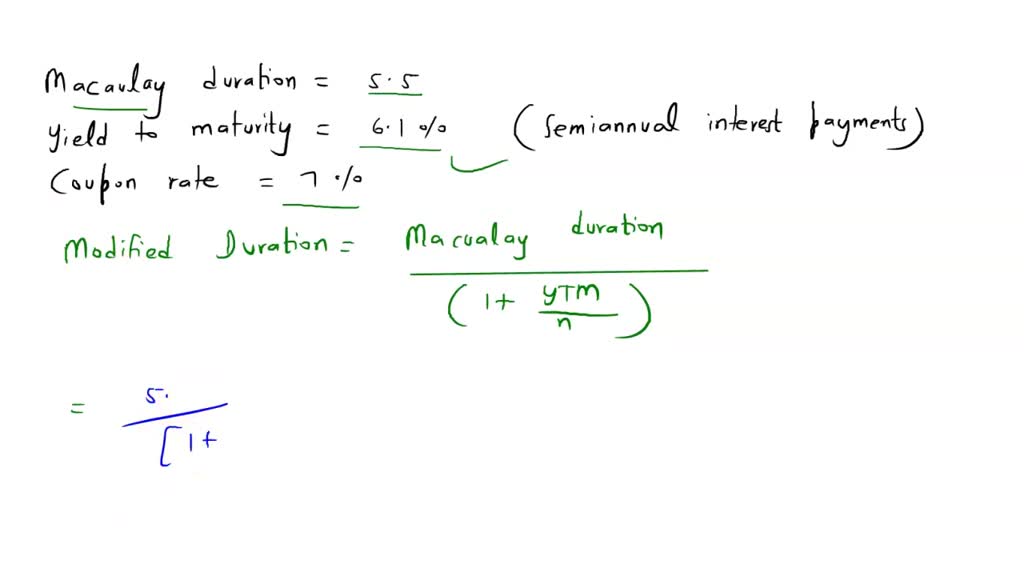 Macaulay duration = 5.5
Yield to maturity = 6.1% (Semiannual interest payments)
Coupon rate = 7%
Modified Duration = Macualay duration
(1+ YTM/n)
= 5.
[1+